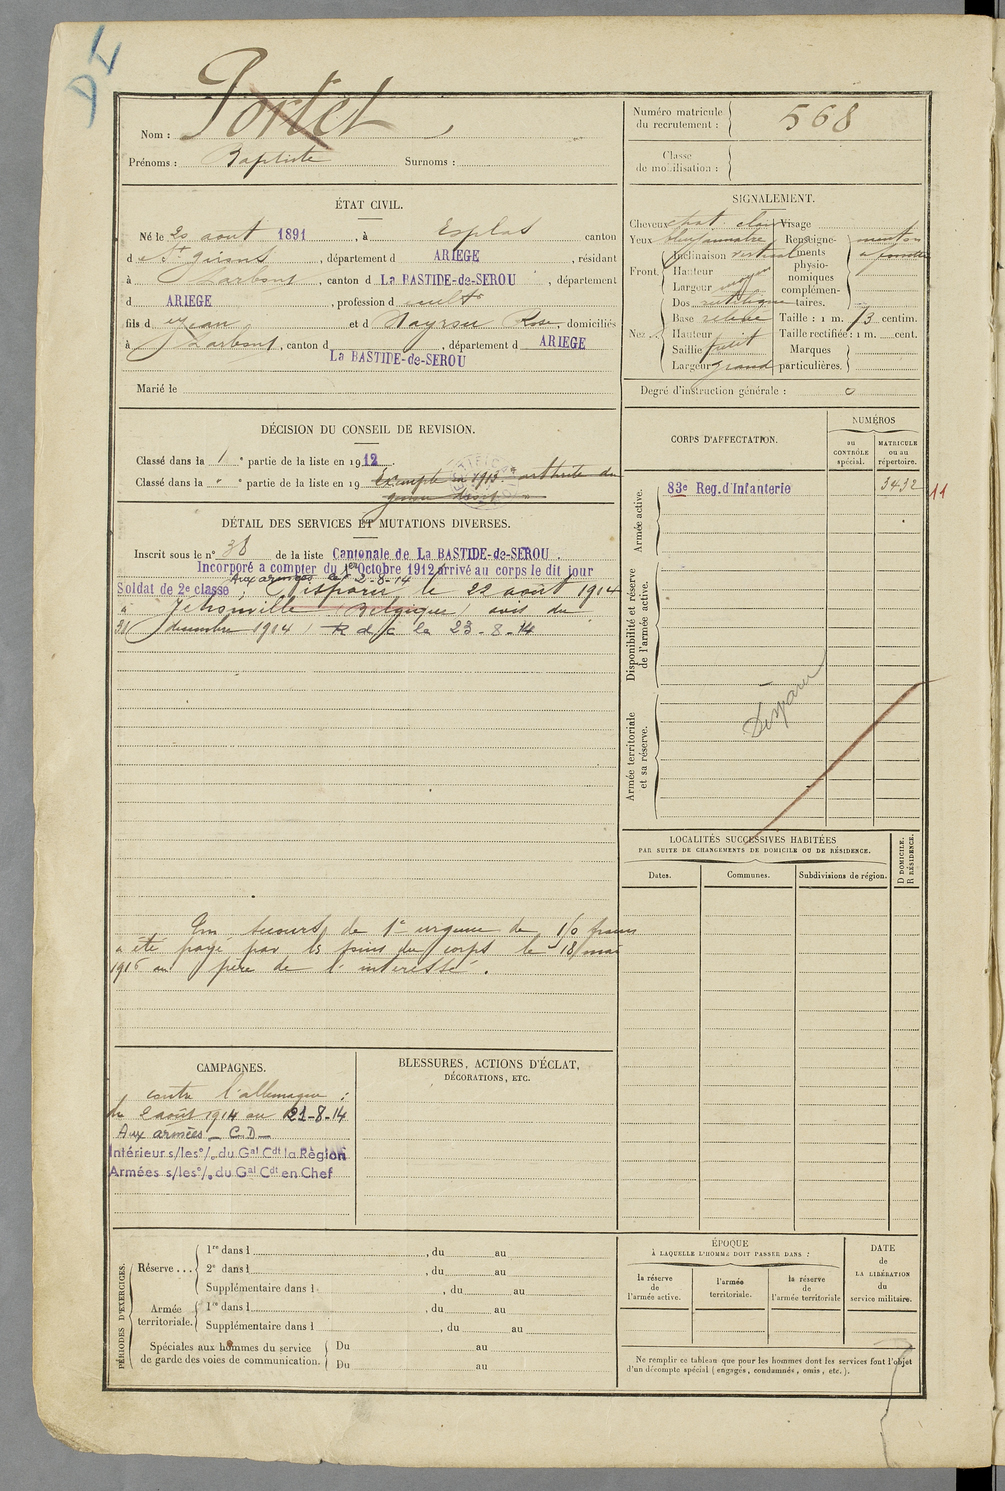 DL
Nom : Portet
Prénoms : Baptiste Surnoms :
Numéro matricule du recrutement : 568
Classe de mobilisation :
ÉTAT CIVIL.
Né le 20 aout 1891, à Esplas canton
d e St girons, département d ARIEGE, résidant
à Larbont, canton d La BASTIDE-de-SEROU, département
d ARIEGE, profession d cultr
fils d e Jean et d Nayrou Rose, domiciliés
à Larbont, canton d La BASTIDE-de-SEROU, département d ARIEGE
Marié le
SIGNALEMENT.
Cheveux chat. clair Visage
Yeux bleu Renseigne- menton
Inclinaison vertical ments à fossette
Front. Hauteur physio-
Largeur moyen nomiques
Dos rectiligne complémen-taires.
Base relevé Taille : 1 m. 73 centim.
Nez. Hauteur Taille rectifiée : 1 m. cent.
Saillie petit Marques
Largeur grand particulières.
Degré d'instruction générale : 0
DÉCISION DU CONSEIL DE REVISION.
Classé dans la 1e partie de la liste en 1912.
Classé dans la " e partie de la liste en 19 Exempté en 1913. arthrite du
genou droit "
DÉTAIL DES SERVICES ET MUTATIONS DIVERSES.
Inscrit sous le n° 38 de la liste Cantonale de La BASTIDE-de-SEROU.
Incorporé a compter du 1er Octobre 1912 arrivé au corps le dit jour
Aux armées le 2-8-14
Soldat de 2e classe ; Disparu le 22 août 1914
à Jehonville (Belgique) avis du
31 décembre 1914) R d C le 23-8-14
Un secours de 1e urgence de 150 francs
a été payé par les soins du corps le 18 mai
1916 au père de l'intéressé.
CORPS D'AFFECTATION.
NUMÉROS
au CONTRÔLE spécial.
MATRICULE ou au répertoire.
Armée active.
83e Reg.d'Infanterie 3432 11
Disponibilité et réserve de l'armée active.
Armée territoriale et sa réserve.
Disparu
LOCALITÉS SUCCESSIVES HABITÉES
PAR SUITE DE CHANGEMENTS DE DOMICILE OU DE RÉSIDENCE.
D DOMICILE.
R RÉSIDENCE.
Dates. Communes. Subdivisions de région.
CAMPAGNES.
contre l'allemagne :
du 2 août 1914 au 21-8-14
Aux armées - C.D -
Intérieur s/les°/. du Gal Cdt la Région
Armées s/les°/. du Gal Cdt en Chef
BLESSURES, ACTIONS D'ÉCLAT,
DÉCORATIONS, ETC.
PÉRIODES D'EXERCICES.
Réserve ...
1re dans l , du au
2e dans l , du au
Supplémentaire dans l , du au
Armée territoriale.
1re dans l , du au
Supplémentaire dans l , du au
Spéciales aux hommes du service de garde des voies de communication.
Du au
Du au
ÉPOQUE
À LAQUELLE L'HOMME DOIT PASSER DANS :
la réserve de l'armée active.
l'armée territoriale.
la réserve de l'armée territoriale
DATE de LA LIBÉRATION du service militaire.
Ne remplir ce tableau que pour les hommes dont les services font l'objet
d'un décompte spécial (engagés, condamnés, omis, etc.).